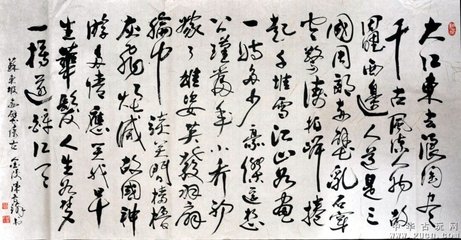 大江東去浪淘盡
千古風流人物故
壘西邊人道是三
國周郎赤壁亂石穿
空驚濤拍岸捲
起千堆雪江山如畫
一時多少豪傑遙想
公瑾當年小喬初
嫁了雄姿英發羽扇
綸巾談笑間檣櫓
灰飛煙滅故國神
遊多情應笑我早
生華髮人生如夢
一樽還酹江月
蘇東坡赤壁懷古
中华古玩网